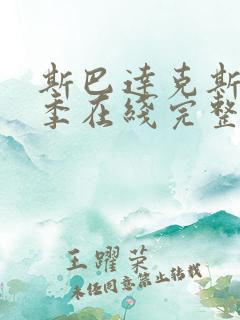 斯巴达克斯
季在线完整
王躍荣
未经同意禁止转载